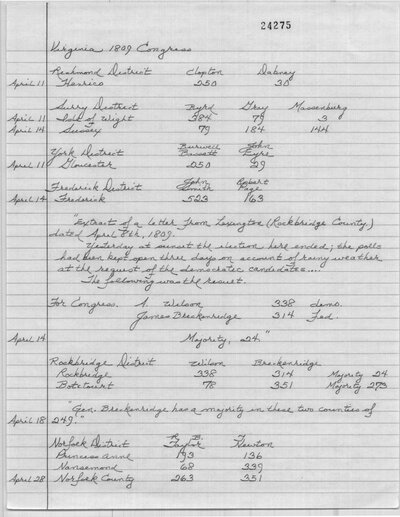 24275
Virginia 1809 Congress
Richmond District Clopton Dabney
April 11 Henrico 250 30
Surry District Byrd Gray Massenburg
April 11 Isle of Wight 384 79 3
April 14 Sussex 79 184 144
York District Burwell Bassett John Eyre
April 11 Gloucester 250 29
Frederick District John Smith Robert Page
April 14 Frederick 523 163
"Extract of a letter from Lexington (Rockbridge County)
dated April 8th, 1809.
Yesterday at sunset the election here ended; the polls
had been kept open three days on account of rainy weather
at the request of the democratic candidates....
The following was the result.
For Congress. A. Wilson 338 demo.
James Breckenridge 314 Fed.
April 14 Majority, 24."
Rockbridge District Wilson Breckenridge
Rockbridge 338 314 Majority 24
Botetourt 78 351 Majority 273
"Gen. Breckenridge has a majority in these two counties of
April 18 249."
Norfolk District R. B. Taylor T. Newton
Princess Anne 193 136
Nansemond 68 339
April 28 Norfolk County 263 351